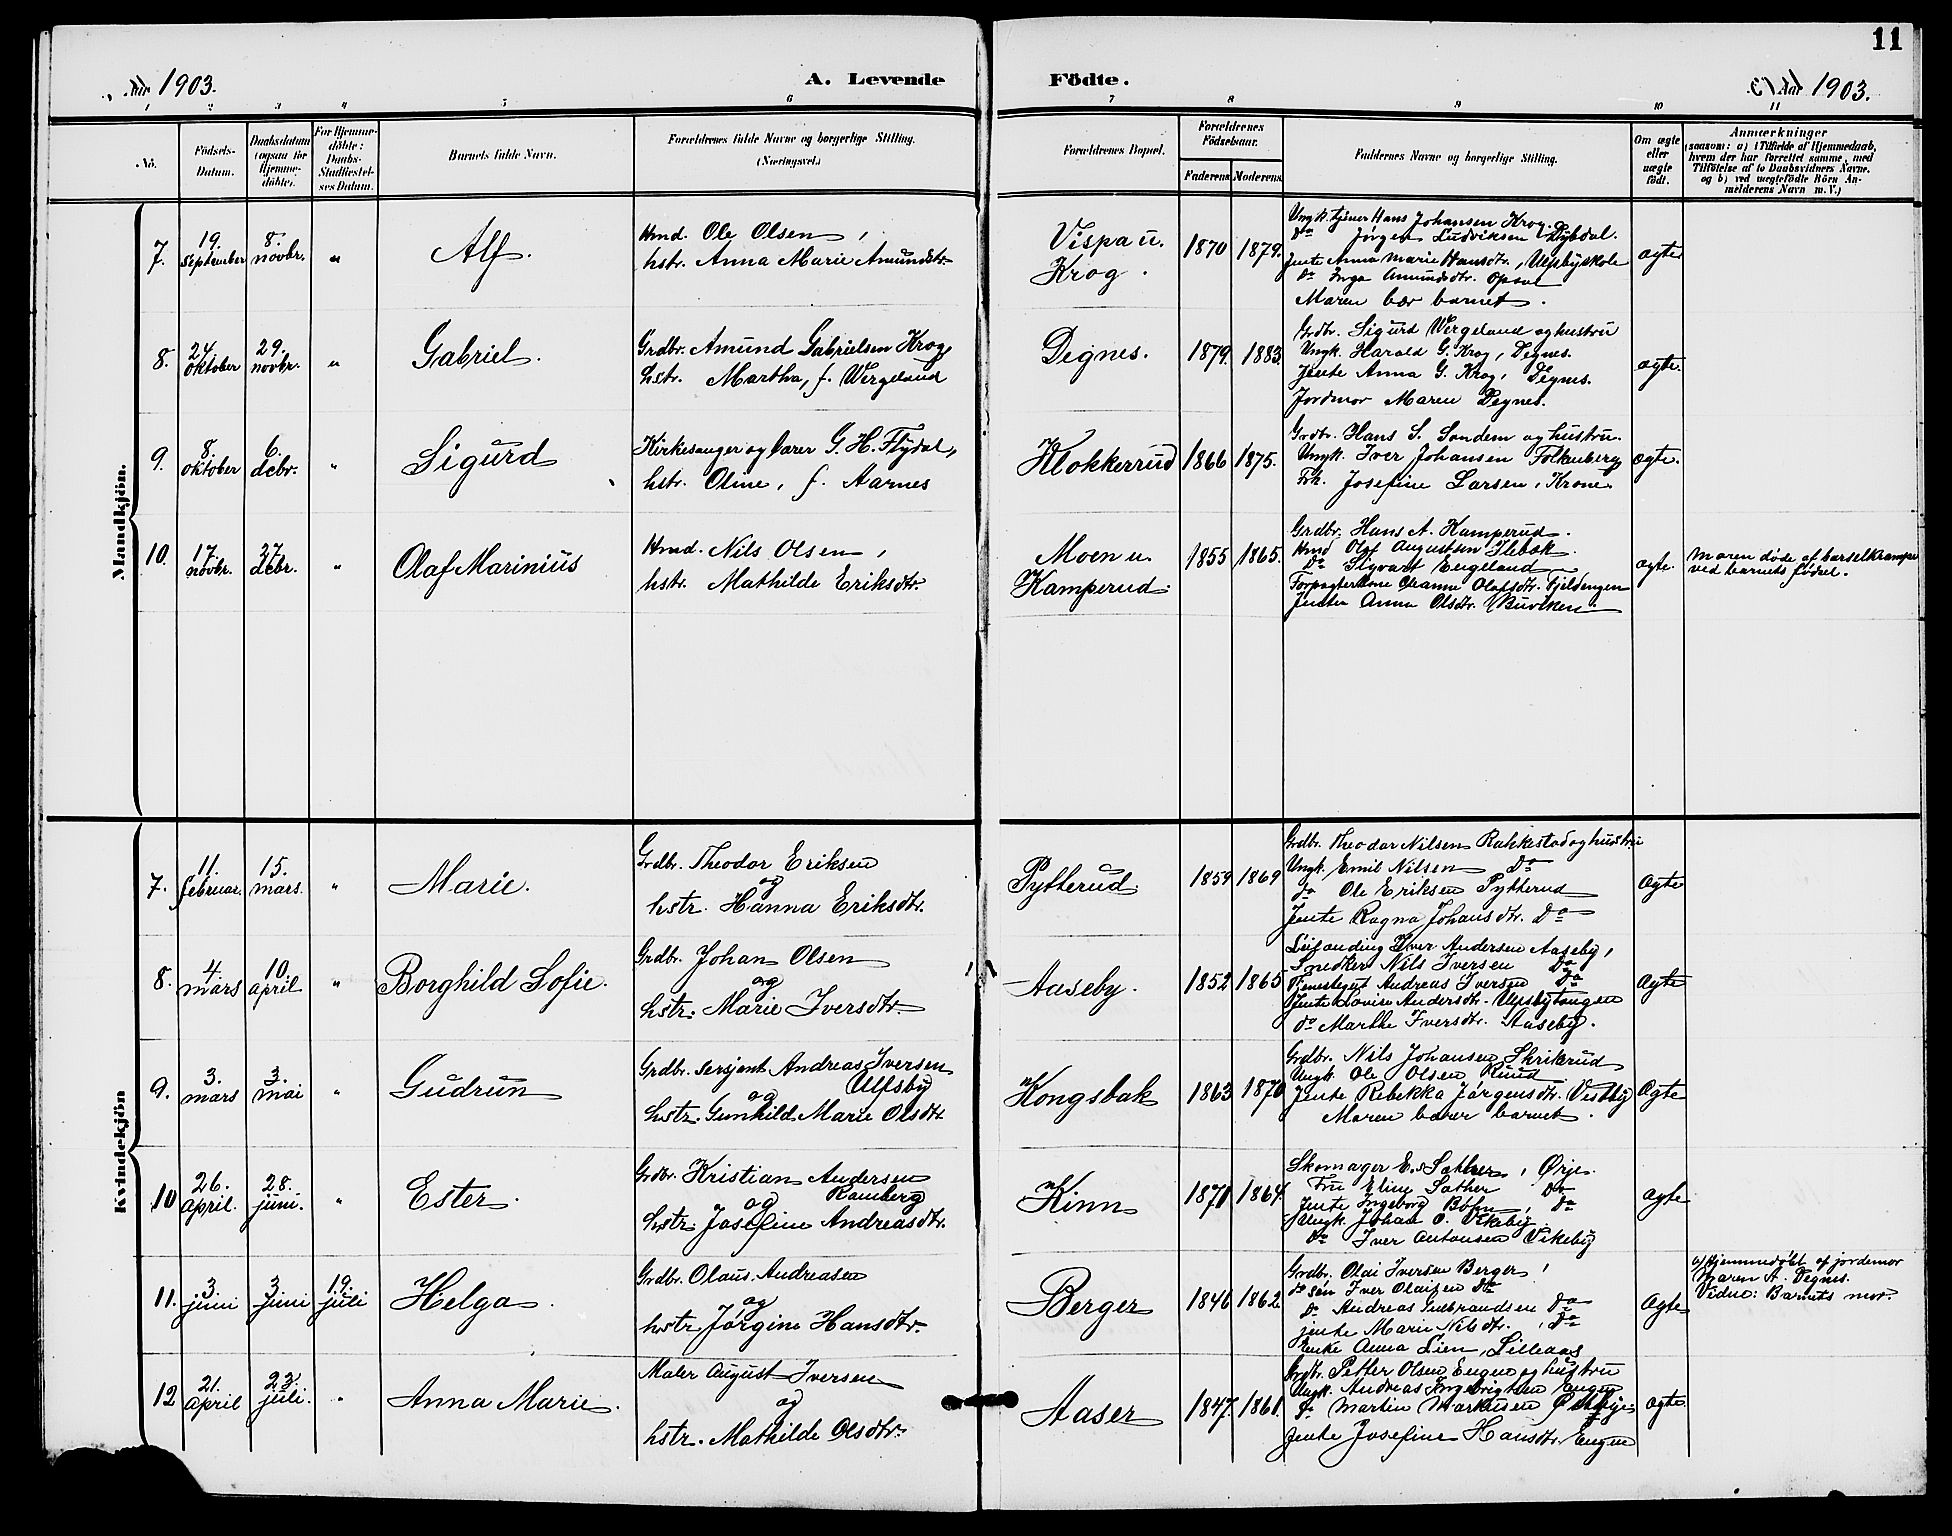 11
1903.
A. Levende Födte.
1903.
1 2 3 4 5 6 7 8 9 10 11
No.
Födsels-
Datum.
Daabsdatum
(ogsaa for
Hjemme-
döbte).
For Hjemme-
döbte:
Daabs-
Stadfæstel-
ses Datum.
Barnets fulde Navn.
Forældrenes fulde Navne og borgerlige Stilling.
(Næringsvei.)
Forældrenes Bopæl.
Forældrenes
Födselsaar.
Faderens. Moderens.
Faddernes Navne og borgerlige Stilling.
Om ægte
eller
uægte
födt.
Anmærkninger
(saasom: a) i Tilfælde af Hjemmedaab,
hvem der har forrettet samme, med
Tilföielse af to Daabsvidners Navne.
og b) ved uægtefödte Börn An-
melderens Navn m. V.)
Mandkjön.
7. 19. september 8. novbr. " Alf.
Hmd. Ole Olsen,
hstr. Anna Marie Amundsdtr.
Vispa u.
Krog.
1870 1879.
Ungk. tjener Hans Johansen Krog.
Do Jørgen Ludviksen Dybdal.
Jente Anna Marie Hansdtr., Ulfsbyskole
Do Inga Amundsdtr. Opsal
Maren bær barnet.
ægte
8. 24 oktober 29. novbr. " Gabriel.
Grdbr. Amund Gabrielsen Krog,
hstr. Martha, f. Wergeland
Degnes.
1879. 1883.
Grdbr. Sigurd Wergeland og hustru
Ungk. Harald G. Krog, Degnes.
Jente Anna G. Krog, Degnes.
Jordmor Maren Degnes.
ægte.
9. 8. oktober 6. debr. " Sigurd
Kirkesanger og lærer G. H. Flydal,
hstr. Oline, f. Aarnes
Klokkerud
1866 1875.
Grdbr. Hans S. Sandem og hustru.
Ungk. Iver Johansen Folkenberg
Frk. Josefine Larsen, Krone.
ægte.
10. 17. novbr. 27. debr. " Olaf Marinius
Hmd. Nils Olsen,
hstr. Mathilde Eriksdtr.
Moen u.
Kamperud.
1855 1865.
Grdbr. Hans A. Kamperud.
Hmd Olaf Augustsen Ilebæk.
Do Sigvart Engeland
Forpagterkone Oleanne Olafsdtr. Fjeldengen
Jenten Anna Olsdtr. Buviken.
ægte.
Moren døde af barselkrampe
ved barnets fødsel.
Kvindekjön
7. 11. februar. 15. mars. " Marie.
Grdbr. Theodor Eriksen
og
hstr. Hanna Eriksdtr.
Pytterud
1859 1869
Grdbr. Theodor Nilsen Rakkestad og hustru
Ungk. Emil Nilsen Do
do Ole Eriksen Pytterud
Jente Ragna Johansdtr. Do
Ægte
8. 4 mars 10 april " Borghild Sofie.
Grdbr. Johan Olsen
og
hstr. Marie Iversdtr.
Aaseby.
1852 1865
Leilænding Iver Andersen Aaseby,
Snedker Nils Iversen Do
Tjenestegut Andreas Iversen Do
Jente Lovise Andersdtr. Ulfsbytangen
do Marthe Iversdtr. Aaseby.
Ægte
9. 3. mars 3. mai " Gudrun
Grdbr. sersjent Andreas Iversen
Ulfsby
og
hstr. Gunhild Marie Olsdtr.
Kongsbak
1863 1870
Grdbr. Nils Johansen Skrikerud
Ungk. Ole Olsen Ruud
Jente Rebekka Jørgensdtr. Vestby
Moren bærer barnet.
Ægte
10 26. april. 28. juni. " Ester.
Grdbr. Kristian Andersen
Ramberg
og
hstr. Josefine Andreasdtr.
Kinn
1871 1864.
Skomager E. Sæther, Ørje.
Fru Eline Sæther Do
Jente Ingeborg Bøhn, Do
Ungk. Johan O. Vikeby
Do Iver Antonsen Vikeby
ægte
11. 3 juni 3 juni 19. juli Helga.
Grdbr. Olaus Andreasen
og
hstr. Jørgine Hansdtr.
Berger
1846 1862
Grdbr. Olai Iversen Berger,
do søn Iver Olaisen do
do Andreas Gulbrandsen Do
jente Marie Nilsdtr., Do
Enke Anna Lien, Lilleaas
Ægte
a) Hjemmedøbt af jordemor
Maren A. Degnes.
Vidne: Barnets mor.
12 21. april 23. juli. " Anna Marie.
Maler August Iversen
og
hstr. Mathilde Olsdtr.
Aaser
1847. 1861.
Grdbr. Petter Olsen Engen og hustru
Ungk. Andreas Ingebrigtsen Engen
do Martin Markusen
Jente Josefine Hansdtr. Engen
ægte